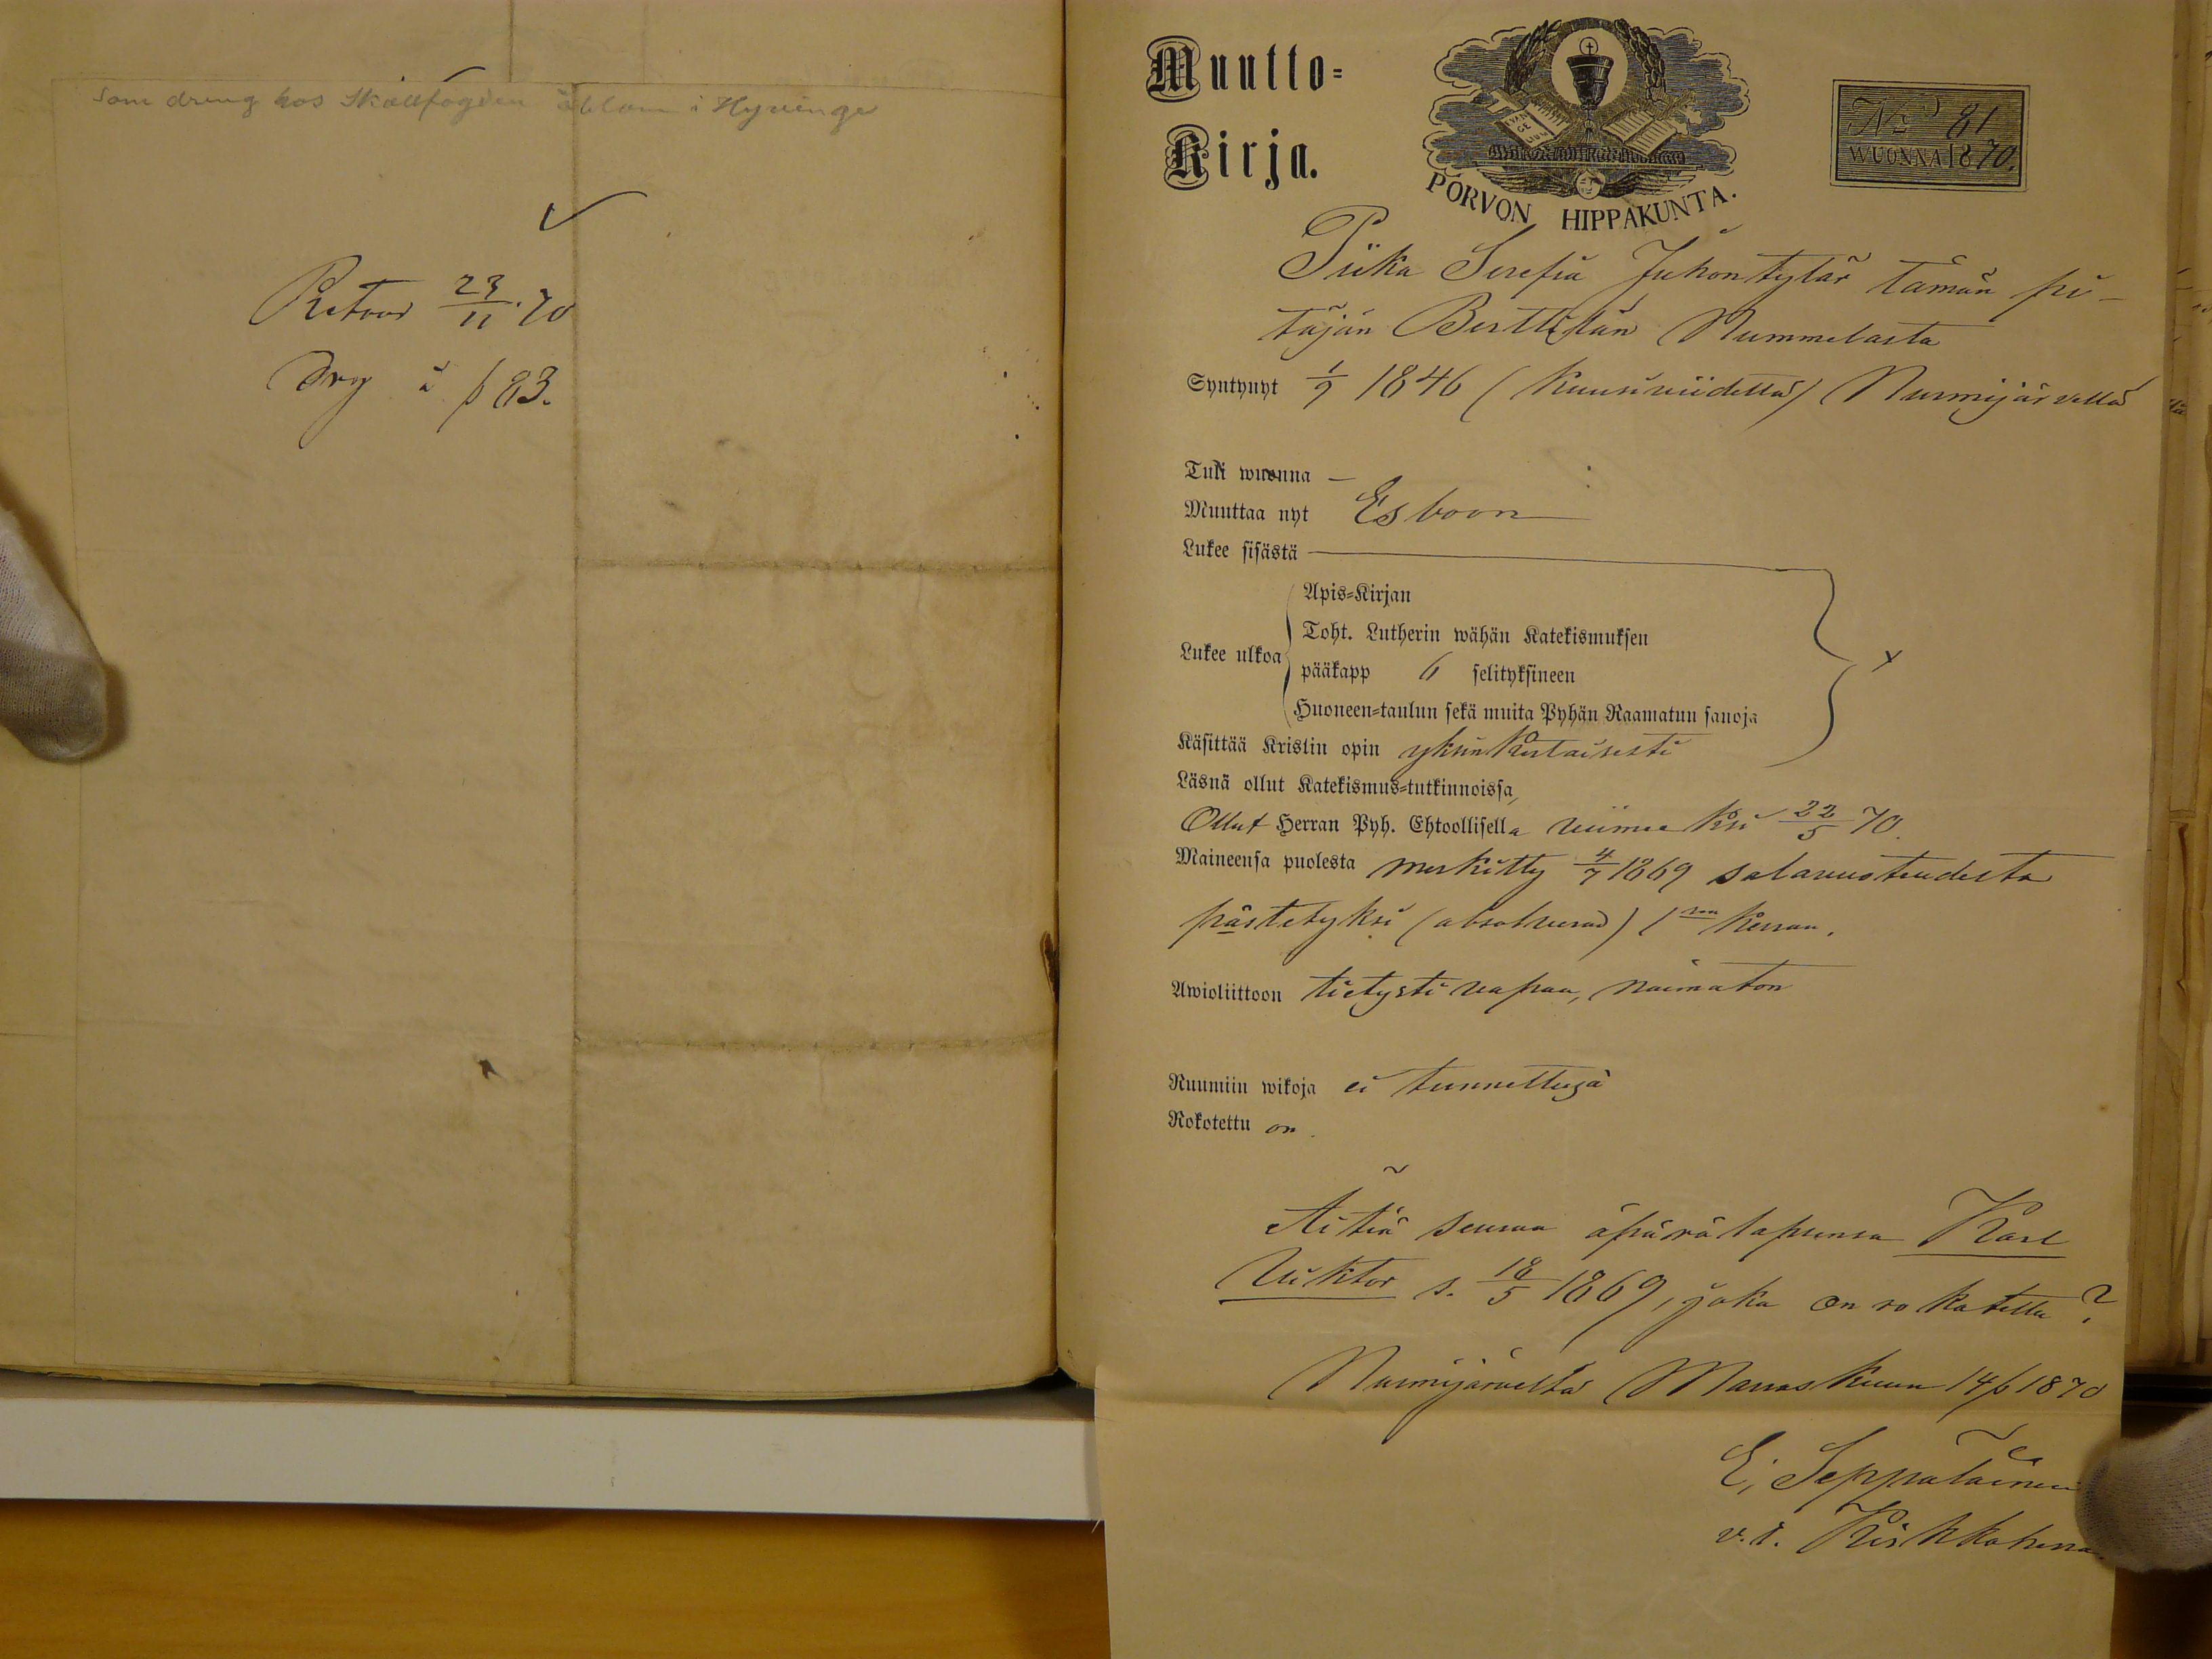 Som dreng hos i Hyvinge
Retour 23/11 70
Drg å p 83.
Muutto=
Kirja.
EVAN
GE
LIUM
PORVON HIPPAKUNTA.
No 81
WUONNA 1870.
Piika Serefia Juhontytär tämän pi-
täjän Berttilän Nummelasta
Syntynyt 1/9 1846 (kuusiviidettä) Nurmijärvellä
Tuli wuonna —
Muuttaa nyt Esboon
Lukee sisästä
Lukee ulkoa
Apis=Kirjan
Toht. Lutherin wähän Katekismuksen
pääkapp 6 selityksineen
Huoneen=taulun sekä muita Pyhän Raamatun sanoja
Käsittää Kristin opin yksinkertaisesti
Läsnä ollut Katekismus=tutkinnoissa,
Ollut Herran Pyh. Ehtoollisella viimeksi 22/5 70.
Maineensa puolesta merkitty 4/7 1869 salavuoteudesta
päs­tetyksi (absolverad) 1 kerran.
Awioliittoon tietysti vapaa, naimaton
Ruumiin wikoja ei tunnettuja
Rokotettu on.
Äitiä seuraa äpärälapsensa Karl
Viktor s. 18/5 1869, joka on rokotettu?
Nurmijärveltä Marraskuun 14 p 1870
E. Seppäläinen
v.t. Kirkkoherra